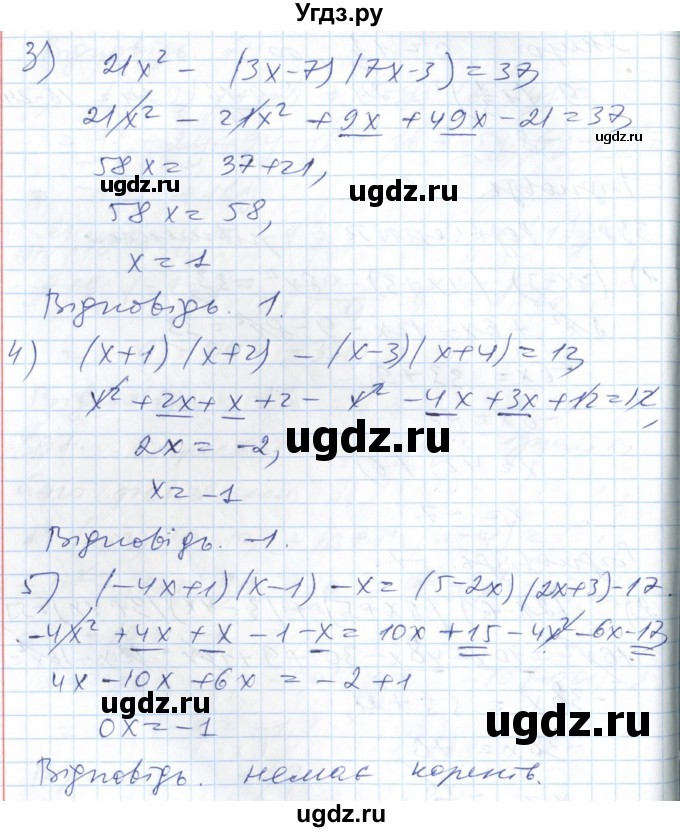 Угдз.ру
3) 21x² - (3x-7)(7x-3) = 37,
21x² - 21x² + 9x + 49x - 21 = 37,
58x = 37+21,
58x = 58,
x = 1
Відповідь. 1.
4) (x+1)(x+2) - (x-3)(x+4) = 12,
x² + 2x + x + 2 - x² - 4x + 3x + 12 = 12,
2x = -2,
x = -1
Відповідь. -1.
5) (-4x+1)(x-1) - x = (5-2x)(2x+3) - 17.
-4x² + 4x + x - 1 - x = 10x + 15 - 4x² - 6x - 17,
4x - 10x + 6x = -2 + 1
0x = -1
Відповідь. немає коренів.
ugdz.ru
ugdz.ru
ugdz.ru
ugdz.ru
ugdz.ru
ugdz.ru
ugdz.ru
ugdz.ru
ugdz.ru